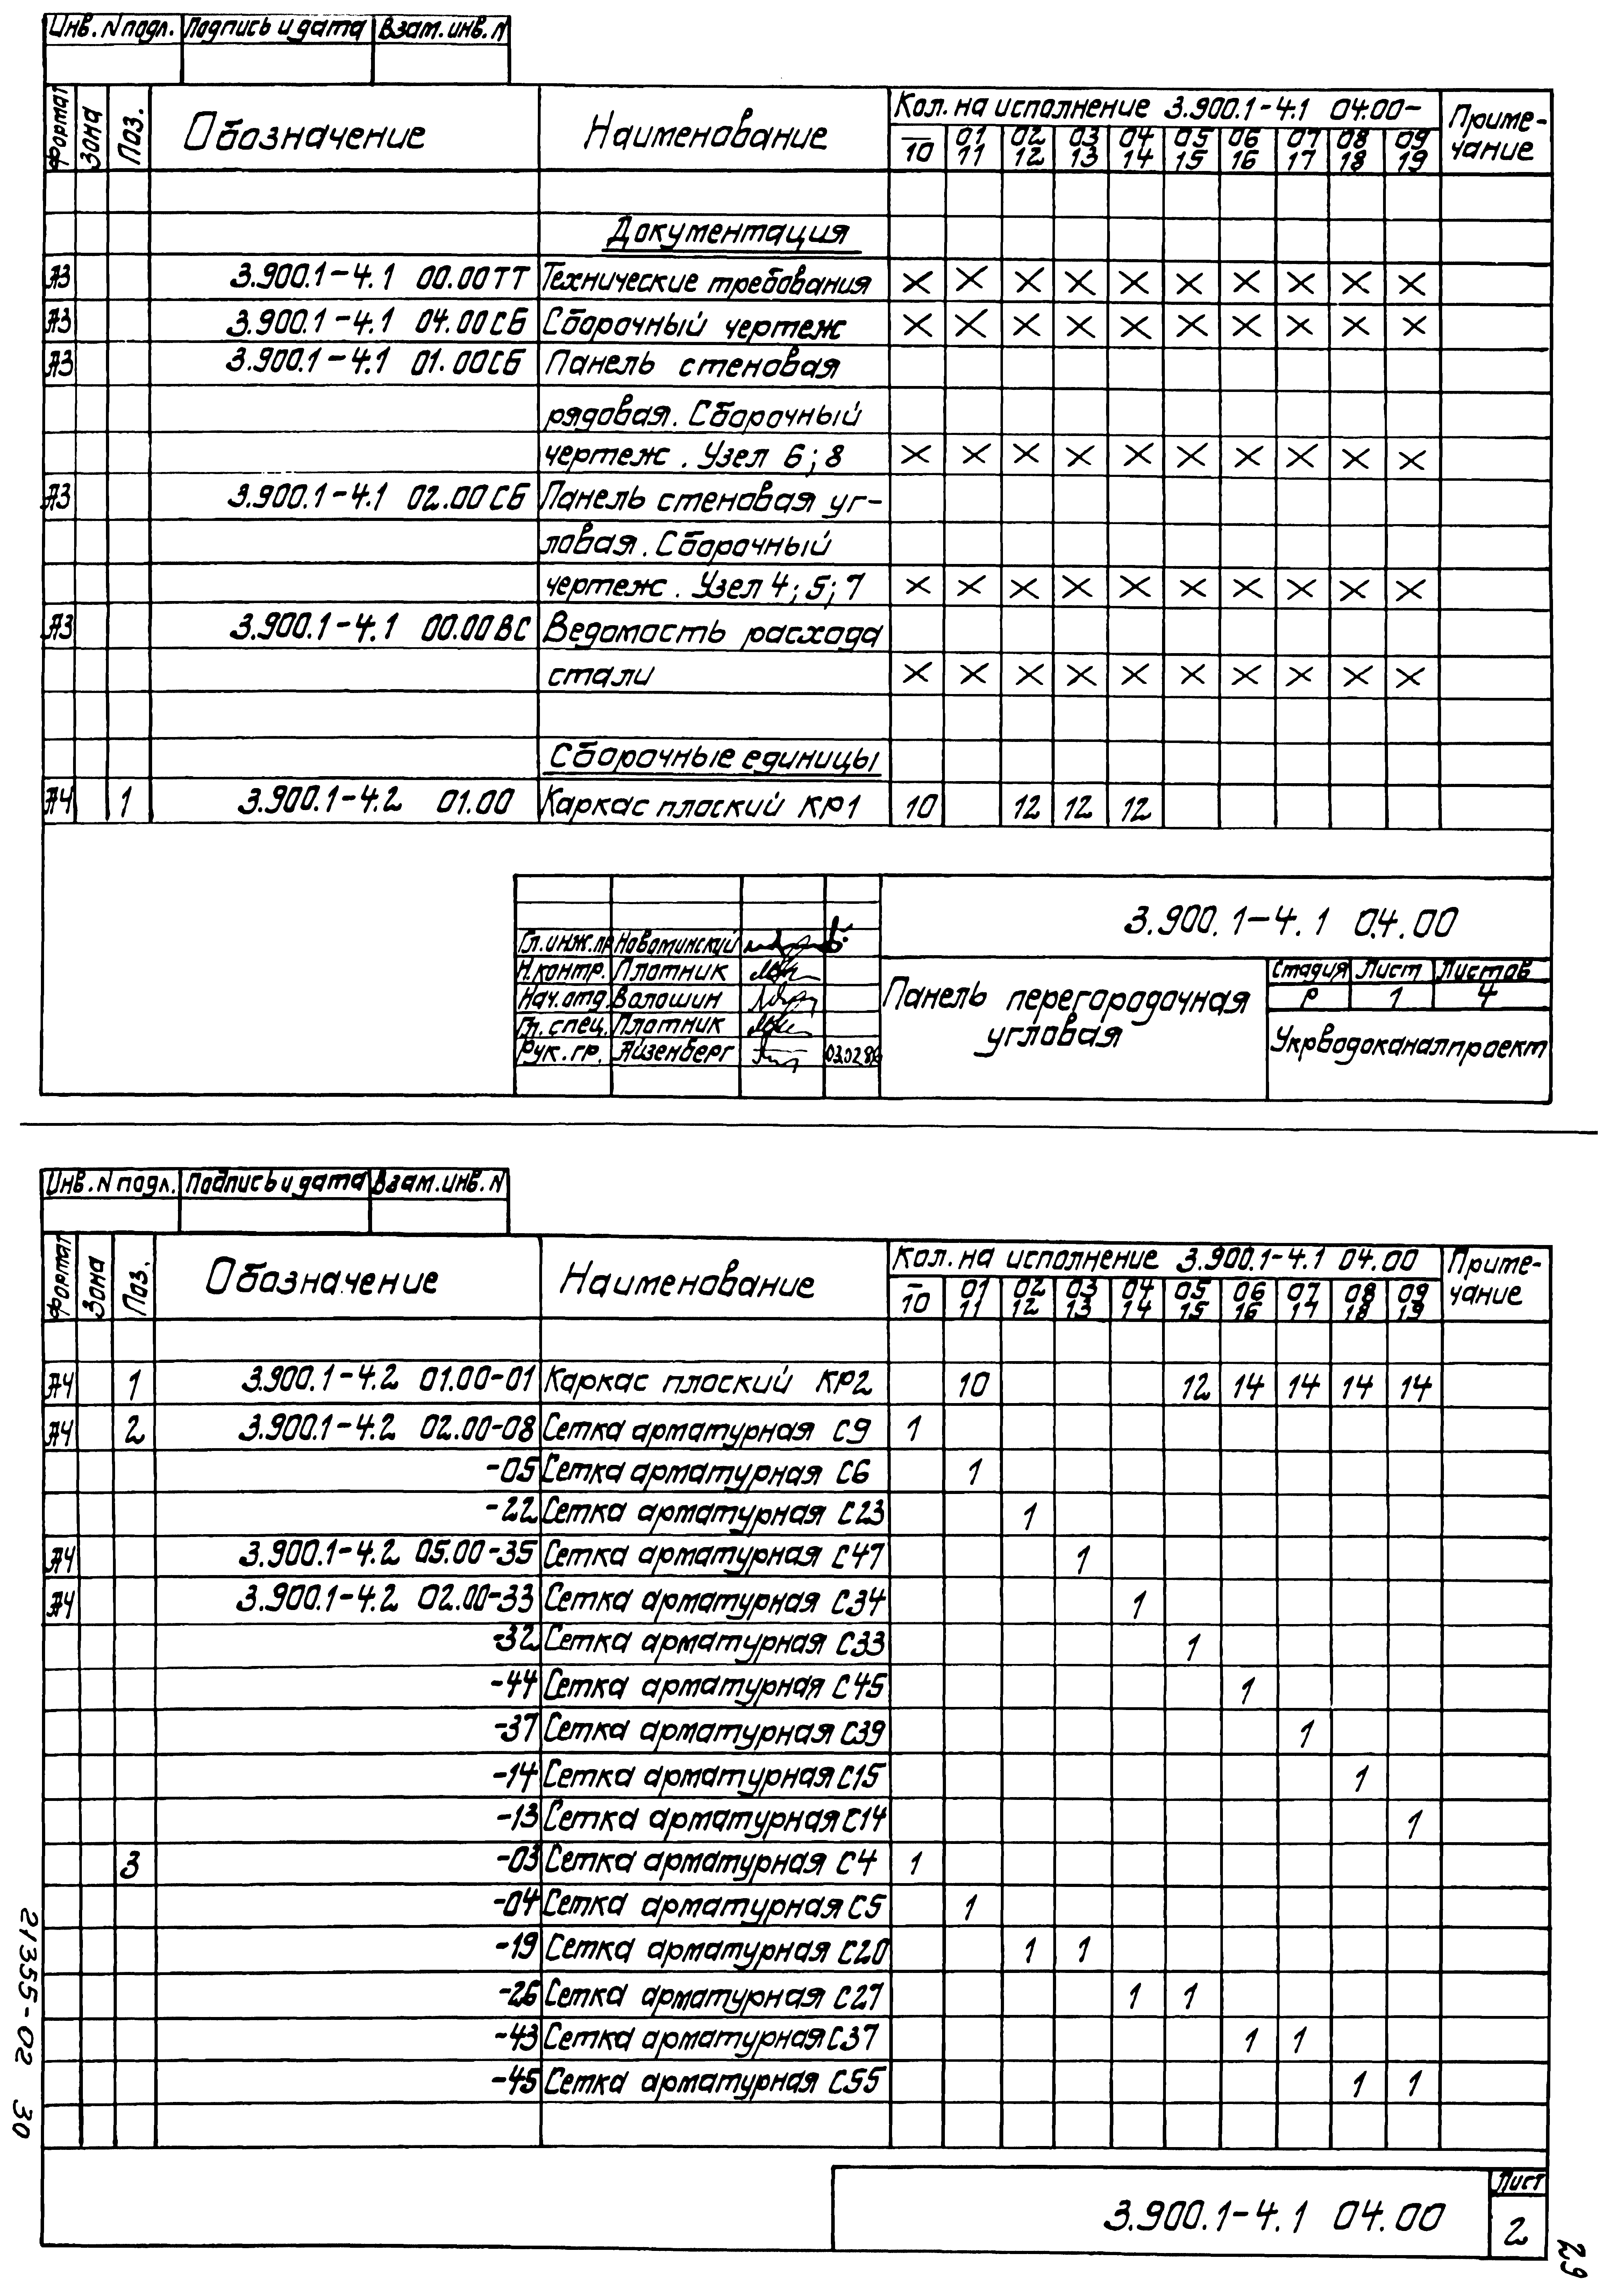 Инв. N подл. Подпись и дата Взам. инв. N
Формат Зона Поз. Обозначение Наименование Кол. на исполнение 3.900.1-4.1 04.00- Приме-
чание
— 01 02 03 04 05 06 07 08 09
10 11 12 13 14 15 16 17 18 19
Документация
А3 3.900.1-4.1 00.00ТТ Технические требования × × × × × × × × × ×
А3 3.900.1-4.1 04.00СБ Сборочный чертеж × × × × × × × × × ×
А3 3.900.1-4.1 01.00СБ Панель стеновая
рядовая. Сборочный
чертеж. Узел 6; 8 × × × × × × × × × ×
А3 3.900.1-4.1 02.00СБ Панель стеновая уг-
ловая. Сборочный
чертеж. Узел 4; 5; 7 × × × × × × × × × ×
А3 3.900.1-4.1 00.00ВС Ведомость расхода
стали × × × × × × × × × ×
Сборочные единицы
А4 1 3.900.1-4.2 01.00 Каркас плоский КР1 10 12 12 12
3.900.1-4.1 04.00
Гл. инж. пр Новоминский
Н. контр. Плотник
Нач. отд. Волошин
Гл. спец. Плотник
Рук. гр. Айзенберг 03.02.86
Панель перегородочная
угловая
Стадия Лист Листов
Р 1 4
Укрводоканалпроект
Инв. N подл. Подпись и дата Взам. инв. N
Формат Зона Поз. Обозначение Наименование Кол. на исполнение 3.900.1-4.1 04.00 Приме-
чание
— 01 02 03 04 05 06 07 08 09
10 11 12 13 14 15 16 17 18 19
А4 1 3.900.1-4.2 01.00-01 Каркас плоский КР2 10 12 14 14 14 14
А4 2 3.900.1-4.2 02.00-08 Сетка арматурная С9 1
-05 Сетка арматурная С6 1
-22 Сетка арматурная С23 1
А4 3.900.1-4.2 05.00-35 Сетка арматурная С47 1
А4 3.900.1-4.2 02.00-33 Сетка арматурная С34 1
-32 Сетка арматурная С33 1
-44 Сетка арматурная С45 1
-37 Сетка арматурная С39 1
-14 Сетка арматурная С15 1
-13 Сетка арматурная С14 1
3 -03 Сетка арматурная С4 1
-04 Сетка арматурная С5 1
-19 Сетка арматурная С20 1 1
-26 Сетка арматурная С27 1 1
-43 Сетка арматурная С37 1 1
-45 Сетка арматурная С55 1 1
3.900.1-4.1 04.00
Лист
2
21355-02 30
29